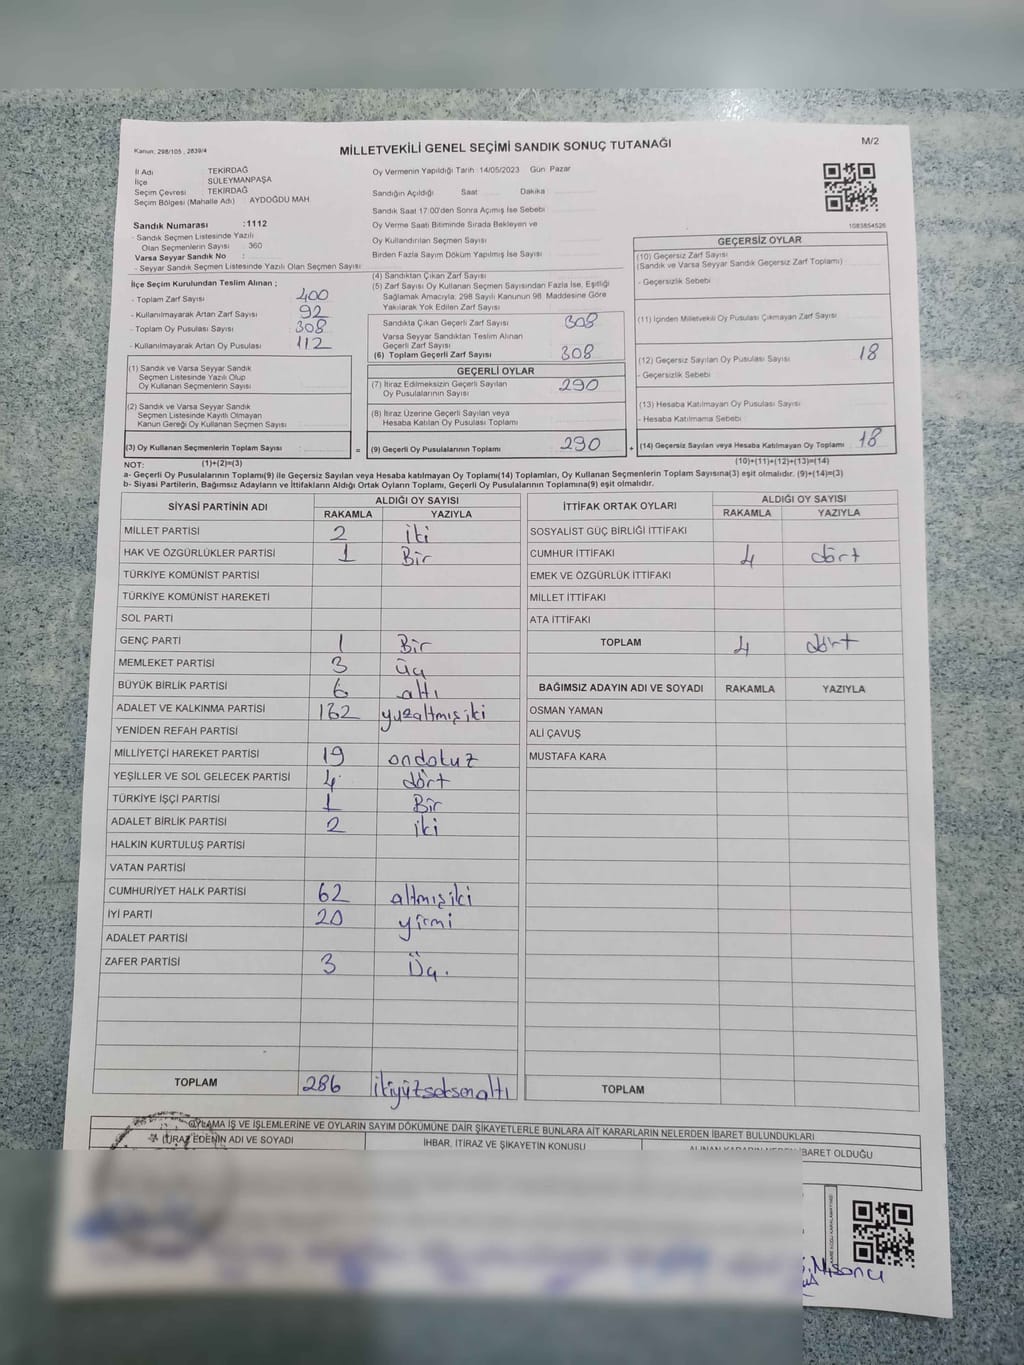 Kanun: 298/105 , 2839/4
MİLLETVEKİLİ GENEL SEÇİMİ SANDIK SONUÇ TUTANAĞI
M/2
İl Adı : TEKİRDAĞ
İlçe : SÜLEYMANPAŞA
Seçim Çevresi : TEKİRDAĞ
Seçim Bölgesi (Mahalle Adı) : AYDOĞDU MAH
Sandık Numarası :1112
- Sandık Seçmen Listesinde Yazılı
Olan Seçmenlerin Sayısı : 360
Varsa Seyyar Sandık No :
- Seyyar Sandık Seçmen Listesinde Yazılı Olan Seçmen Sayısı
İlçe Seçim Kurulundan Teslim Alınan ;
- Toplam Zarf Sayısı 400
- Kullanılmayarak Artan Zarf Sayısı 92
- Toplam Oy Pusulası Sayısı 308
- Kullanılmayarak Artan Oy Pusulası 112
(1) Sandık ve Varsa Seyyar Sandık
Seçmen Listesinde Yazılı Olup
Oy Kullanan Seçmenlerin Sayısı
(2) Sandık ve Varsa Seyyar Sandık
Seçmen Listesinde Kayıtlı Olmayan
Kanun Gereği Oy Kullanan Seçmen Sayısı
(3) Oy Kullanan Seçmenlerin Toplam Sayısı
(1)+(2)=(3)
Oy Vermenin Yapıldığı Tarih :14/05/2023 Gün :Pazar
Sandığın Açıldığı Saat Dakika
Sandık Saat 17:00'den Sonra Açımış İse Sebebi
Oy Verme Saati Bitiminde Sırada Bekleyen ve
Oy Kullandırılan Seçmen Sayısı
Birden Fazla Sayım Döküm Yapılmış İse Sayısı
(4) Sandıktan Çıkan Zarf Sayısı
(5) Zarf Sayısı Oy Kullanan Seçmen Sayısından Fazla İse, Eşitliği
Sağlamak Amacıyla; 298 Sayılı Kanunun 98. Maddesine Göre
Yakılarak Yok Edilen Zarf Sayısı
Sandıkta Çıkan Geçerli Zarf Sayısı 308
Varsa Seyyar Sandıktan Teslim Alınan
Geçerli Zarf Sayısı
(6) Toplam Geçerli Zarf Sayısı 308
GEÇERLİ OYLAR
(7) İtiraz Edilmeksizin Geçerli Sayılan
Oy Pusulalarının Sayısı 290
(8) İtiraz Üzerine Geçerli Sayılan veya
Hesaba Katılan Oy Pusulası Toplamı
= (9) Geçerli Oy Pusulalarının Toplamı 290
1083854526
GEÇERSİZ OYLAR
(10) Geçersiz Zarf Sayısı
(Sandık ve Varsa Seyyar Sandık Geçersiz Zarf Toplamı)
- Geçersizlik Sebebi
(11) İçinden Milletvekili Oy Pusulası Çıkmayan Zarf Sayısı
(12) Geçersiz Sayılan Oy Pusulası Sayısı 18
- Geçersizlik Sebebi
(13) Hesaba Katılmayan Oy Pusulası Sayısı
- Hesaba Katılmama Sebebi
+ (14) Geçersiz Sayılan veya Hesaba Katılmayan Oy Toplamı 18
(10)+(11)+(12)+(13)=(14)
NOT:
a- Geçerli Oy Pusulalarının Toplamı(9) ile Geçersiz Sayılan veya Hesaba katılmayan Oy Toplamı(14) Toplamları, Oy Kullanan Seçmenlerin Toplam Sayısına(3) eşit olmalıdır. (9)+(14)=(3)
b- Siyasi Partilerin, Bağımsız Adayların ve İttifakların Aldığı Ortak Oyların Toplamı, Geçerli Oy Pusulalarının Toplamına(9) eşit olmalıdır.
SİYASİ PARTİNİN ADI ALDIĞI OY SAYISI
RAKAMLA YAZIYLA
MİLLET PARTİSİ 2 iki
HAK VE ÖZGÜRLÜKLER PARTİSİ 1 Bir
TÜRKİYE KOMÜNİST PARTİSİ
TÜRKİYE KOMÜNİST HAREKETİ
SOL PARTİ
GENÇ PARTİ 1 Bir
MEMLEKET PARTİSİ 3 üç
BÜYÜK BİRLİK PARTİSİ 6 altı
ADALET VE KALKINMA PARTİSİ 162 yüzaltmışiki
YENİDEN REFAH PARTİSİ
MİLLİYETÇİ HAREKET PARTİSİ 19 ondokuz
YEŞİLLER VE SOL GELECEK PARTİSİ 4 dört
TÜRKİYE İŞÇİ PARTİSİ 1 Bir
ADALET BİRLİK PARTİSİ 2 iki
HALKIN KURTULUŞ PARTİSİ
VATAN PARTİSİ
CUMHURİYET HALK PARTİSİ 62 altmışiki
İYİ PARTİ 20 yirmi
ADALET PARTİSİ
ZAFER PARTİSİ 3 Üç.
TOPLAM 286 ikiyüzseksenaltı
İTTİFAK ORTAK OYLARI ALDIĞI OY SAYISI
RAKAMLA YAZIYLA
SOSYALİST GÜÇ BİRLİĞİ İTTİFAKI
CUMHUR İTTİFAKI 4 dört
EMEK VE ÖZGÜRLÜK İTTİFAKI
MİLLET İTTİFAKI
ATA İTTİFAKI
TOPLAM 4 dört
BAĞIMSIZ ADAYIN ADI VE SOYADI RAKAMLA YAZIYLA
OSMAN YAMAN
ALİ ÇAVUŞ
MUSTAFA KARA
TOPLAM
OYLAMA İŞ VE İŞLEMLERİNE VE OYLARIN SAYIM DÖKÜMÜNE DAİR ŞİKAYETLERLE BUNLARA AİT KARARLARIN NELERDEN İBARET BULUNDUKLARI
İTİRAZ EDENİN ADI VE SOYADI İHBAR, İTİRAZ VE ŞİKAYETİN KONUSU İBARET OLDUĞU